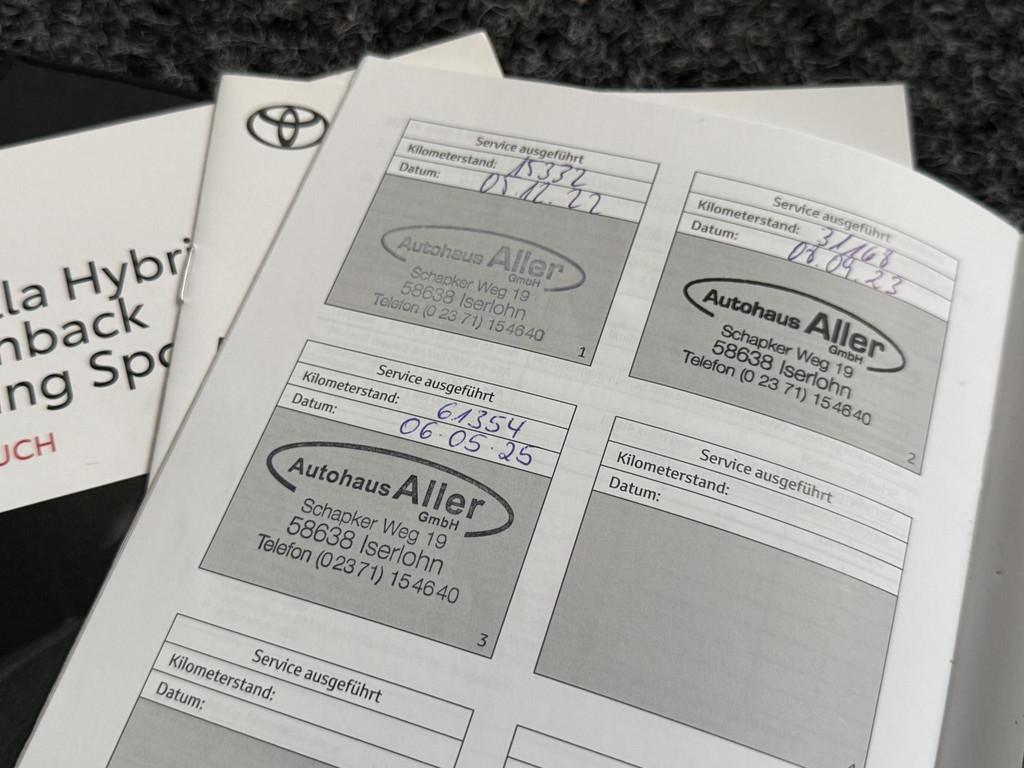 lla Hybri
nback
ing Spo
UCH
Service ausgeführt
Kilometerstand: 15332
Datum: 05.12.22
Autohaus Aller
GmbH
Schapker Weg 19
58638 Iserlohn
Telefon (0 23 71) 15 46 40
1
Service ausgeführt
Kilometerstand: 31168
Datum: 06.09.23
Autohaus Aller
GmbH
Schapker Weg 19
58638 Iserlohn
Telefon (0 23 71) 15 46 40
2
Service ausgeführt
Kilometerstand: 61354
Datum: 06.05.25
Autohaus Aller
GmbH
Schapker Weg 19
58638 Iserlohn
Telefon (0 23 71) 15 46 40
3
Service ausgeführt
Kilometerstand:
Datum:
Service ausgeführt
Kilometerstand:
Datum: